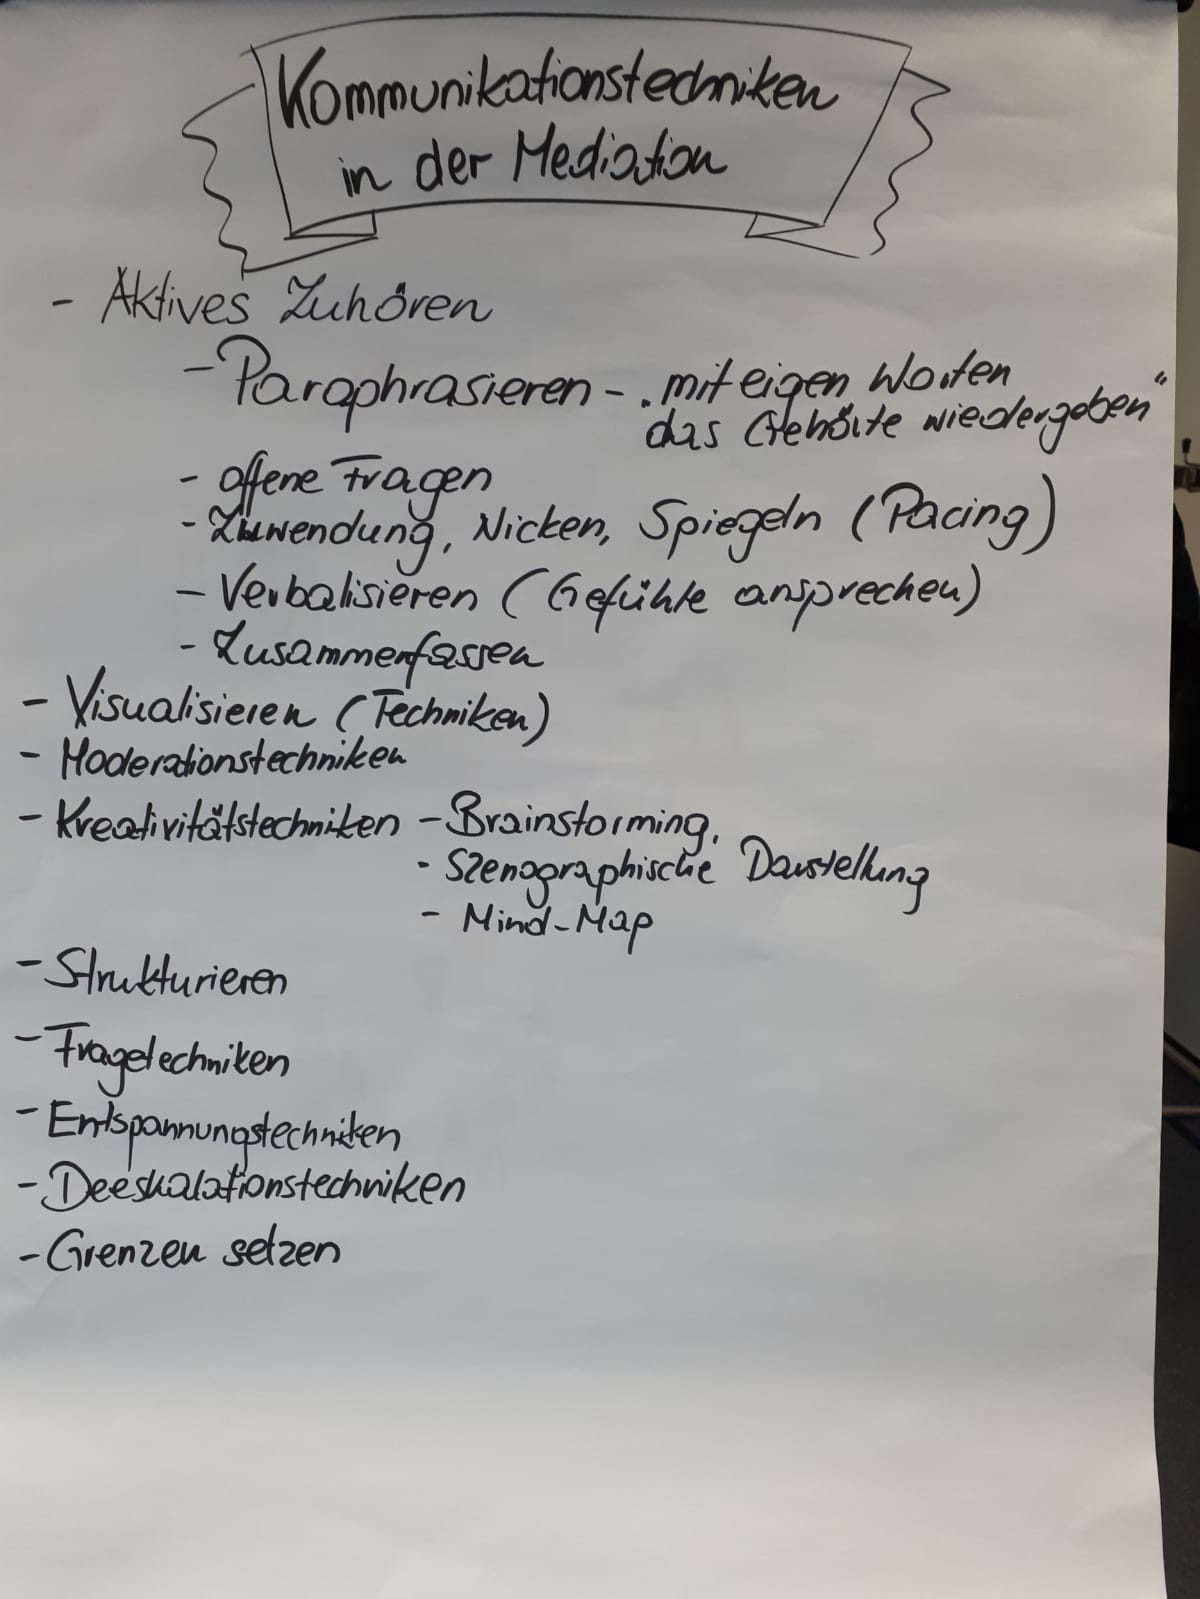 Kommunikationstechniken
in der Mediation
- Aktives Zuhören
- Paraphrasieren - „mit eigen Worten
das Gehörte wiedergeben“
- offene Fragen
- Zuwendung, Nicken, Spiegeln (Pacing)
- Verbalisieren (Gefühle ansprechen)
- Zusammenfassen
- Visualisieren (Techniken)
- Moderationstechniken
- Kreativitätstechniken - Brainstorming,
- Szenographische Darstellung
- Mind-Map
- Strukturieren
- Fragetechniken
- Entspannungstechniken
- Deeskalationstechniken
- Grenzen setzen